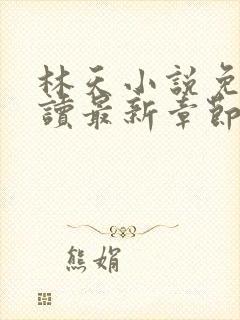 林天小說免
讀最新章節
熊娟